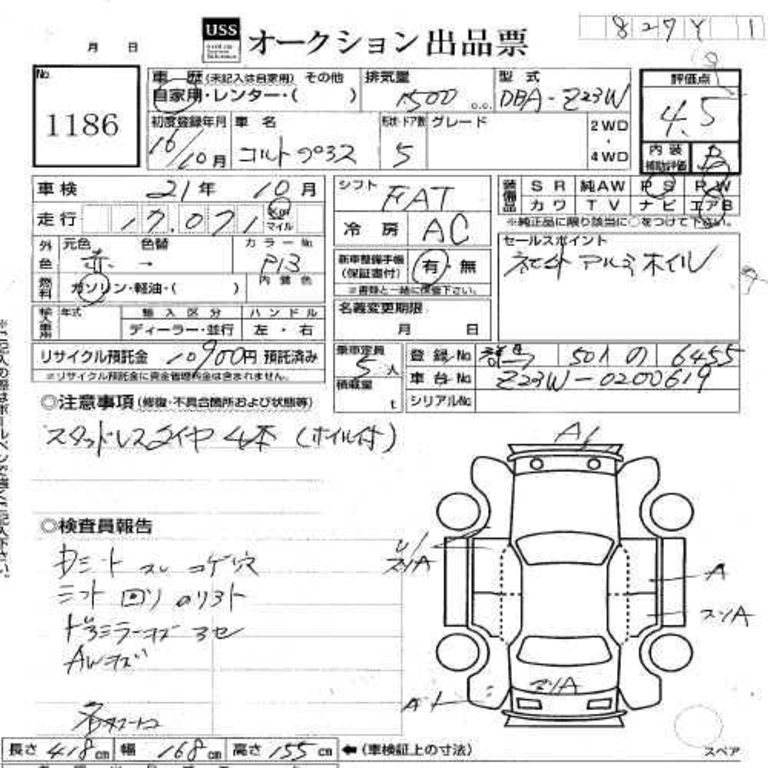 827Y 1
USS オークション 出品票
月 日
No
1186
車 歴 (未記入は自家用) その他
自家用・レンター・( )
排気量
1500 c.c.
型 式
DBA-Z23W
評価点
4.5
初度登録年月
16/10月
車 名
コルトプラス
形状・ドア数
5
グレード
2WD
・
4WD
内装
補助評価
B
車検 21年 10月
シフト FAT
装備品
SR 純AW PS PW
カワ TV ナビ エアB
※純正品に限り該当に○をつけて下さい。
走行 17,071 Km マイル
冷房 AC
セールスポイント
社外 アルミホイル
外色
元色 色替 カラーNo.
赤 → P13
新車整備手帳
(保証書付)
有・無
※書類と一緒に保管下さい。
燃料
ガソリン・軽油・( )
内装色
名義変更期限
月 日
輸入車用
年式 輸入区分 ハンドル
ディーラー・並行 左・右
リサイクル預託金 10900円 預託済み
※リサイクル預託金に資金管理料金は含まれません。
乗車定員
5人
積載量
t
登録No 群馬 501 の 6455
車台No Z23W-0200619
シリアルNo
◎注意事項(修復・不具合箇所および状態等)
スタッドレスタイヤ 4本 (ホイル付)
◎検査員報告
シート スレ コゲ穴
ドアミラーキズ
AWキズ
A
A
A
長さ 418cm 幅 168cm 高さ 155cm ←(車検証上の寸法)
スペア